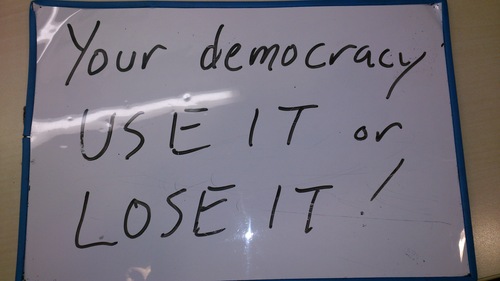 Your democracy
USE IT or
LOSE IT!